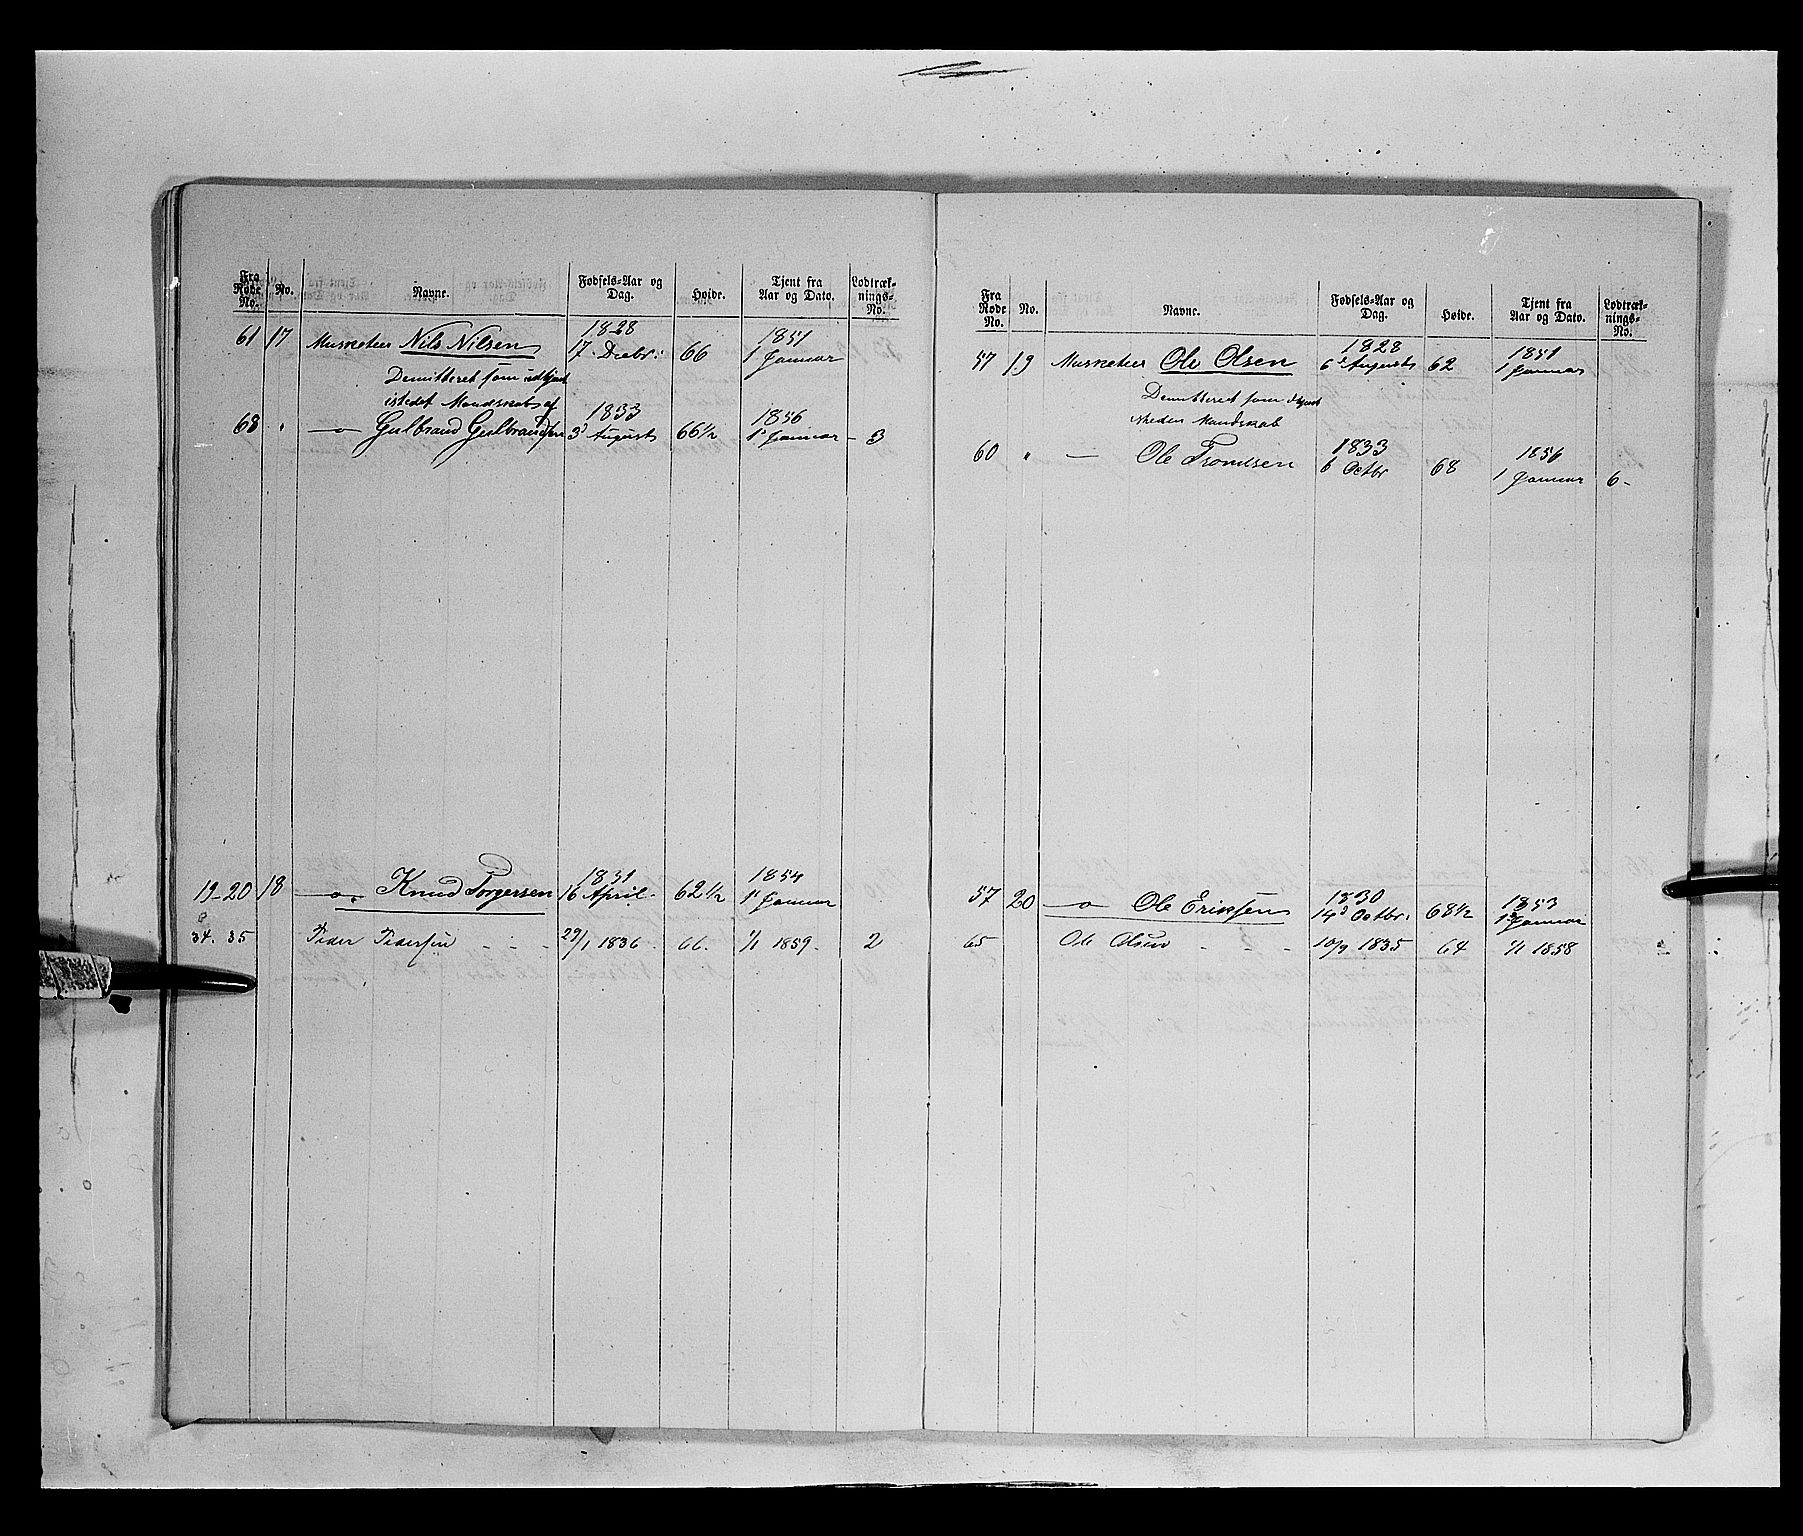 Fra Rode No. No. Navne. Fødsels-Aar og Dag. Høide. Tjent fra Aar og Dato. Lodtræk-nings-No.
61 17 Musketeer Nils Nilsen 1828 17 Decbr. 66 1851 1 Januar
Demitteret som udtjent
istedet Mandskab af
68 " —o— Gulbrand Gulbrandsen 1833 3d August 66½ 1856 1 Januar — 3
19-20 18 —o— Knud Torgersen 1831 16 April 62½ 1854 1 Januar
34. 35 Peder Pedersen - - - 29/1 1836 66. 1/1 1859 - 2
Fra Rode No. No. Navne. Fødsels-Aar og Dag. Høide. Tjent fra Aar og Dato. Lodtræk-nings-No.
57 19 Musketeer Ole Olsen 1828 6 August 62 1851 1 Januar
Demitteret som udtjent
Mandskab
60 " — Ole Trondsen 1833 6 Octbr 68 1856 1 Januar 6-
57 20 —o— Ole Eriksen 1830 14d Octbr. 68½ 1853 1 Januar
65 Ole Olsen - - - 10/9 1835 64 1/1 1858